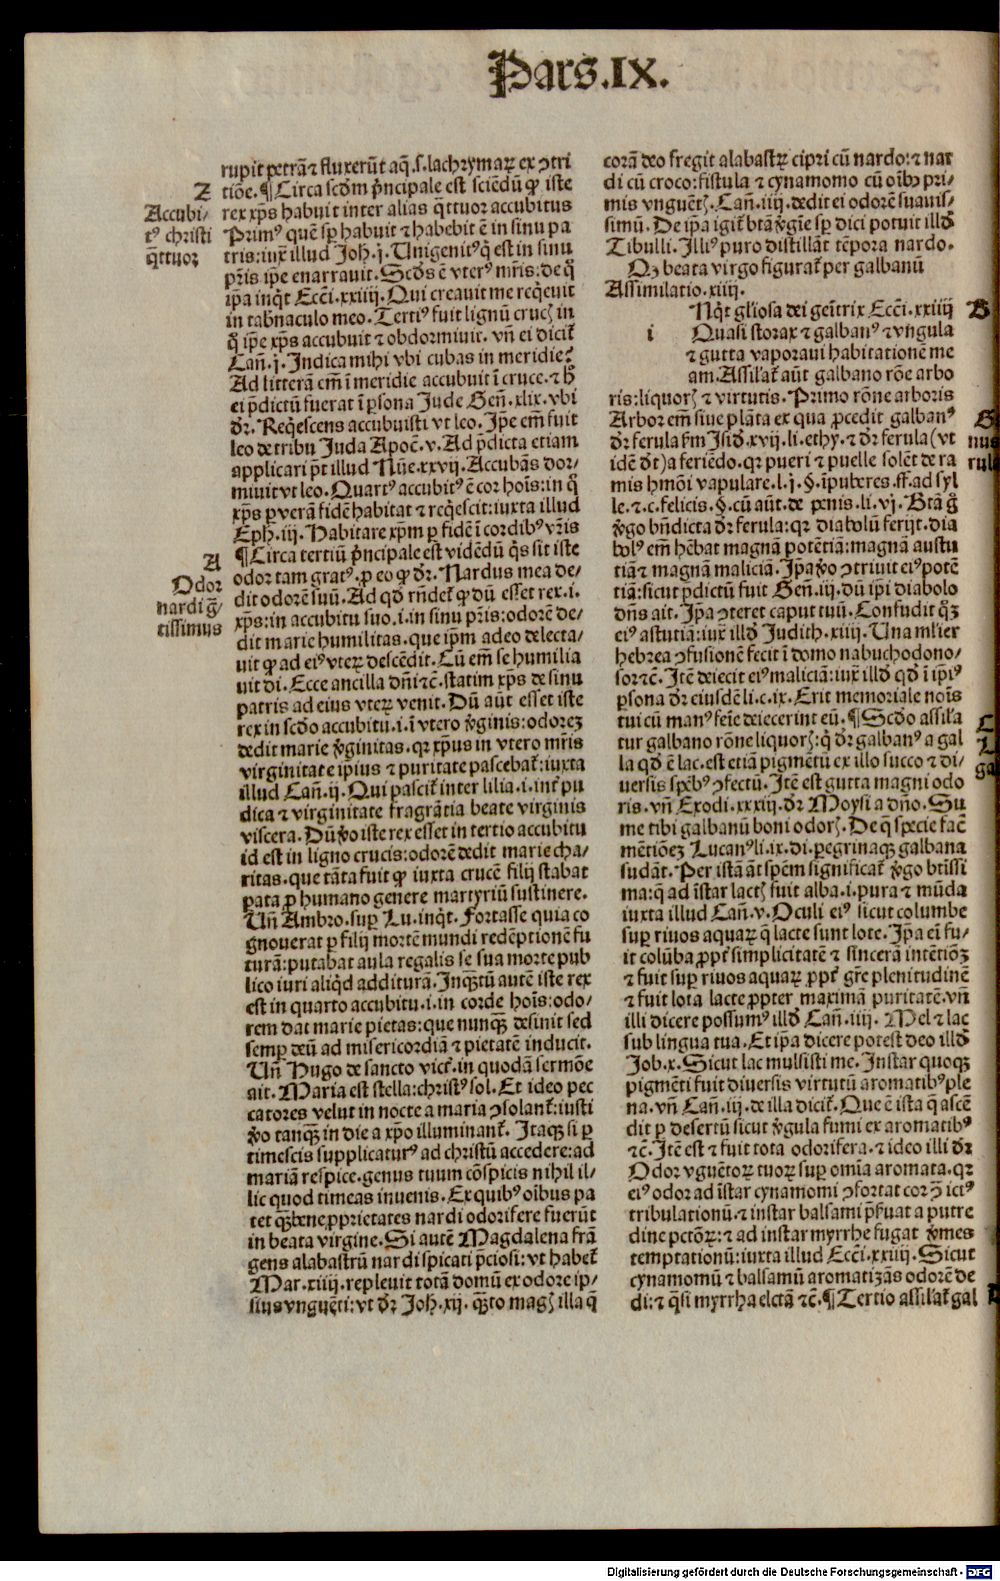 Pars.IX.
rupit petrā ⁊ fluxerūt aq̄.s.lachrymaꝝ ex ↄtri
tiōe.¶Circa scd̄m p̄ncipale est sciēdū ꝙ iste
rex xp̄s habuit inter alias q̄ttuor accubitus
Primꝰ quē sp̄ habuit ⁊ habebit ē in sinu pa
tris:iux̄ illud Joh̄.j.Unigenitꝰ q̄ est in sinu
pr̄is ip̄e enarrauit.Scd̄s ē vterꝰ mr̄is:de q̄
ip̄a inq̄t Ecc̄i.xxiiij.Qui creauit me req̄euit
in tab̄naculo meo.Tertiꝰ fuit lignū crucꝭ in
q̄ ip̄e xp̄s accubuit ⁊ obdormiuit.vn̄ ei dicit̄
Cañ.j.Indica mihi vbi cubas in meridie?
Ad litterā em̄ ī meridie accubuit ī cruce.⁊ h̄
ei p̄dictū fuerat ī ꝑsona Jude Gen̄.xlix.vbi
dr̄.Req̄escens accubuisti vt leo.Ip̄e em̄ fuit
leo de tribu Juda Apoc̄.v.Ad p̄dicta etiam
applicari pt̄ illud Nūe.xxvij.Accubās dor-
miuit vt leo.Quartꝰ accubitꝰ ē cor hoīs:in q̄
xp̄s ꝑ verā fidē habitat ⁊ req̄escit:iuxta illud
Eph̄.iij.Habitare xp̄m ꝑ fidē ī cordibꝰ vr̄is
¶Circa tertiū p̄ncipale est vidēdū q̄s sit iste
odor tam gratꝰ.ꝓ eo ꝙ dr̄.Nardus mea de-
dit odorē suū.Ad qd̄ rn̄det̄ ꝙ dū esset rex.i.
xp̄s:in accubitu suo.i.in sinu pr̄is:odorē de-
dit marie humilitas.que ip̄m adeo delecta-
uit ꝙ ad eiꝰ vteꝝ descēdit.Cū em̄ se humilia
uit di.Ecce ancilla dn̄i ⁊c̄.statim xp̄s de sinu
patris ad eius vteꝝ venit.Dū aūt esset iste
rex in scd̄o accubitu.i.ī vtero v̄ginis:odoreꝫ
dedit marie v̄ginitas.qꝛ xp̄us in vtero mr̄is
virginitate ip̄ius ⁊ puritate pascebat̄:iuxta
illud Cañ.ij.Qui pascit̄ inter lilia.i.int̄ pu
dica ⁊ virginitate fragrātia beate virginis
viscera.Dū v̄o iste rex esset in tertio accubitu
id est in ligno crucis:odorē dedit marie cha-
ritas.que tāta fuit ꝙ iuxta crucē filij stabat
ꝑata ꝓ humano genere martyriū sustinere.
Un̄ Ambro.suꝑ Lu.inq̄t.Fortasse quia co
gnouerat ꝑ filij mortē mundi redēptionē fu
turā:putabat aula regalis se sua morte pub
lico iuri aliq̄d addituram.Inq̄ꝫtū autē iste rex
est in quarto accubitu.i.in corde hoīs:odo-
rem dat marie pietas:que nunq̄ꝫ desinit sed
semꝑ deū ad misericordiā ⁊ pietatē inducit.
Un̄ Hugo de sancto vict̄.in quodā sermōe
ait.Maria est stella:christꝰ sol.Et ideo pec
catores velut in nocte a maria ↄsolant̄:iusti
v̄o tanq̄ꝫ in die a xp̄o illuminant̄.Itaqꝫ si ꝑ
timescis supplicaturꝰ ad christū accedere:ad
mariā respice.genus tuum cōspicis nihil il-
lic quod timeas inuenis.Ex quibꝰ oībus pa
tet q̄ꝫbene ꝓprietates nardi odorifere fuerūt
in beata virgine.Si autē Magdalena frā
gens alabastrū nardi spicati p̄ciosi:vt habet̄
Mar.xiiij.repleuit totā domū ex odore ip-
sius vnguēti:vt dr̄ Joh̄.xij.q̄ꝫto magꝭ illa q̄
Z
Accubi-
tꝰ christi
q̄ttuor
A
Odor
nardi g̃-
tissimus
corā deo fregit alabastꝝ cipri cū nardo:⁊ nar
di cū croco:fistula ⁊ cynamomo cū oībꝰ pri-
mis vnguētꝭ.Cañ.iiij.dedit ei odorē suauis-
simū.De ip̄a igit̄ btā v̄gīe sꝑ dici potuit illd̄
Tibulli.Illiꝰ puro distillāt tēpora nardo.
Qꝫ beata virgo figurat̄ per galbanū
Assimilatio.xiiij.
Nq̄t gl̄iosa dei genitrix Ecc̄i.xxiiij
i Quasi storax ⁊ galbanꝰ ⁊ vngula
⁊ gutta vaporaui habitationē me
am.Assilat̄ aūt galbano rōne arbo
ris:liquorꝭ ⁊ virtutis.Primo rōne arboris
Arbor em̄ siue plāta ex qua ꝓcedit galbanꝰ
dr̄ ferula ẜm Isid̄.xvij.li.ethy.⁊ dr̄ ferula(vt
idē dt̄)a feriēdo.qꝛ pueri ⁊ puelle solēt de ra
mis hmōi vapulare.l.j.§.īpuberes.ff.ad syl
le.⁊.c.felicis.§.cū aūt.de penis.li.vj.Btā g̃
v̄go bn̄dicta dr̄ ferula:qꝛ diabolū ferijt.dia
bolꝰ em̄ hēbat magnā potētiā:magnā austu
tiā ⁊ magnā maliciā.Ip̄a v̄o ↄtriuit eiꝰ potē
tiā:sicut p̄dictū fuit Gen̄.iij.dū ip̄i diabolo
dn̄s ait.Ip̄a ↄteret caput tuū.Confudit q̄ꝫ
eiꝰ astutiā:iux̄ illd̄ Judith.xiiij.Una ml̄ier
hebrea ↄfusionē fecit ī domo nabuchodono-
sor ⁊c̄.Itē deiecit eiꝰ maliciā:iux̄ illd̄ qd̄ ī ip̄iꝰ
ꝑsona dr̄ eiusdē li.c.ix.Erit memoriale noīs
tui cū manꝰ feīe deiecerint eū.¶Scd̄o assila
tur galbano rōne liquorꝭ:q̄ dr̄ galbanꝰ a gal
la qd̄ ē lac.est etiā pigmētū ex illo succo ⁊ di-
uersis sp̄ebꝰ ↄfectū.Itē est gutta magni odo
ris.vn̄ Exodi.xxxiij.dr̄ Moysi a dn̄o.Su
me tibi galbanū boni odorꝭ.De q̄ specie fac̄
mētiōeꝫ Lucanꝰ li.ix.di.ꝑegrinaqꝫ galbana
sudāt.Per istā aūt sp̄em significat̄ v̄go btīssi
ma:q̄ ad īstar lactꝭ fuit alba.i.pura ⁊ mūda
iuxta illud Cañ.v.Oculi eiꝰ sicut columbe
suꝑ riuos aquaꝝ q̄ lacte sunt lote.Ip̄a ei̅ fu-
it colūba ꝓpt̄ simplicitatē ⁊ sincerā intētiōꝫ
⁊ fuit suꝑ riuos aquaꝝ ꝓpt̄ gr̄e plenitudinē
⁊ fuit lota lacte ꝓpter maximā puritatē.vn̄
illi dicere possumꝰ illd̄ Cañ.iiij.Mel ⁊ lac
sub lingua tua.Et ip̄a dicere potest deo illd̄
Job.x.Sicut lac mulsisti me.Instar quoqꝫ
pigmēti fuit diuersis virtutū aromatibꝰ ple
na.vn̄ Cañ.iij.de illa dicit̄.Que ē ista q̄ ascē
dit ꝑ desertū sicut v̄gula fumi ex aromatibꝰ
⁊c̄.Itē est ⁊ fuit tota odorifera.⁊ ideo illi dr̄
Odor vguētoꝝ tuoꝝ suꝑ omīa aromata.qꝛ
eiꝰ odor ad īstar cynamomi ↄfortat cor
tribulationū.⁊ instar balsami p̄seruat a putre
dine pctōꝝ:⁊ ad instar myrrhe fugat v̄mes
temptationū:iuxta illud Ecc̄i.xxiiij.Sicut
cynamomū ⁊ balsamū aromatizās odorē de
di:⁊ q̄si myrrha elctā ⁊c̄.¶Tertio assilat̄ gal
B
Digitalisierung gefördert durch die Deutsche Forschungsgemeinschaft - DFG